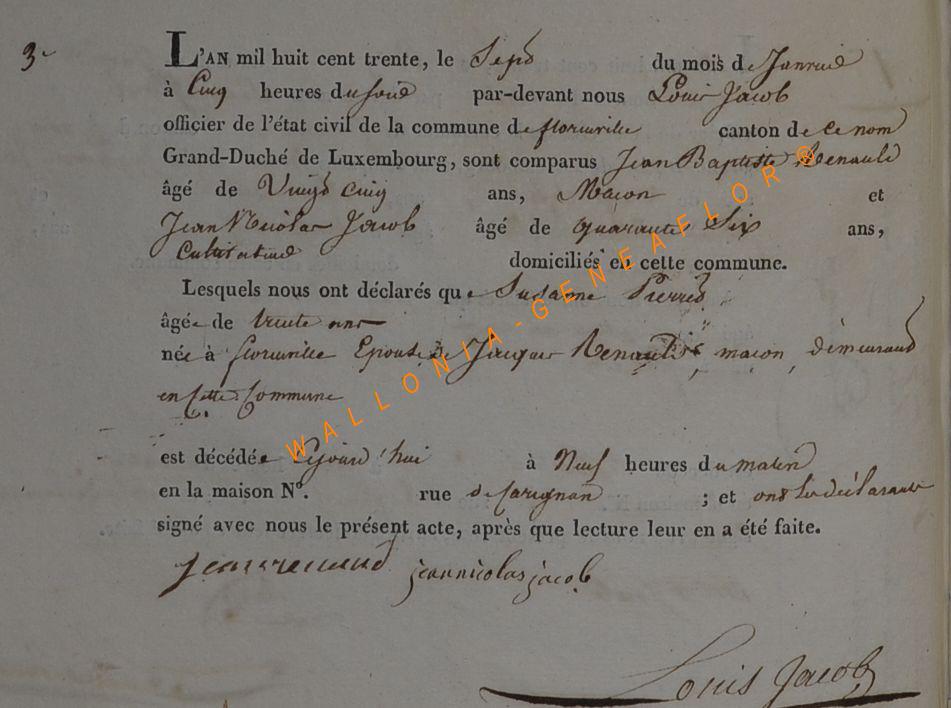 3e
L'AN mil huit cent trente, le Sept du mois de Janvier
à Cinq heures du soir par-devant nous Louis Jacob
officier de l'état civil de la commune de florenville canton de ce nom
Grand-Duché de Luxembourg, sont comparus Jean Baptiste Renauld
âgé de Vingt cinq ans, Macon et
Jean Nicolas Jacob âgé de quarante Six ans,
Cultivateur domiciliés en cette commune.
Lesquels nous ont déclarés que Susanne Pierret
âgée de trente ans
née à florenville Epouse de Jacques Renauld macon, demeurant
en Cette Commune
est décédée à Neuf heures du matin
en la maison N°. rue de Carignan ; et ont les déclarants
signé avec nous le présent acte, après que lecture leur en a été faite.
jean renauld jean nicolas jacob
Louis Jacob
WALLONIA-GENEAFLOR ®